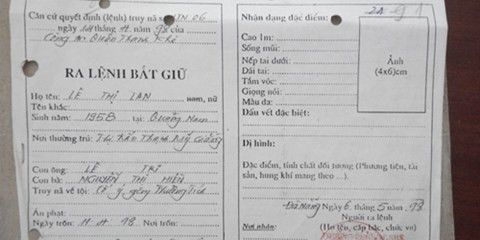 Căn cứ quyết định (lệnh) truy nã số IN 06
ngày tháng 4 năm 98 của
Công an Quận Thanh Khê
RA LỆNH BẮT GIỮ
Họ tên: LÊ THỊ LAN nam, nữ
Tên khác:
Sinh năm: 1958 tại: Quảng Nam
Nơi thường trú:
Con ông: LÊ TRÍ
Con bà: NGUYỄN THỊ HIỀN
Truy nã về tội: Cố ý gây Thương Tích
Án phạt:
Ngày trốn: 11.4.98. Nơi trốn:
Nhận dạng đặc điểm:
Cao 1m:
Sống mũi:
Nếp tai dưới:
Dái tai:
Tầm vóc:
Giọng nói:
Màu da:
Dấu vết đặc biệt:
Ảnh
(4x6)cm
Dị hình:
Đặc điểm, tính chất đối tượng (Phương tiện, tài
sản, hung khí mang theo ...).
Đà Nẵng Ngày 6 tháng 5 năm 98
Người ra lệnh
Nơi nhận: (Họ tên, cấp bậc, chức vụ)